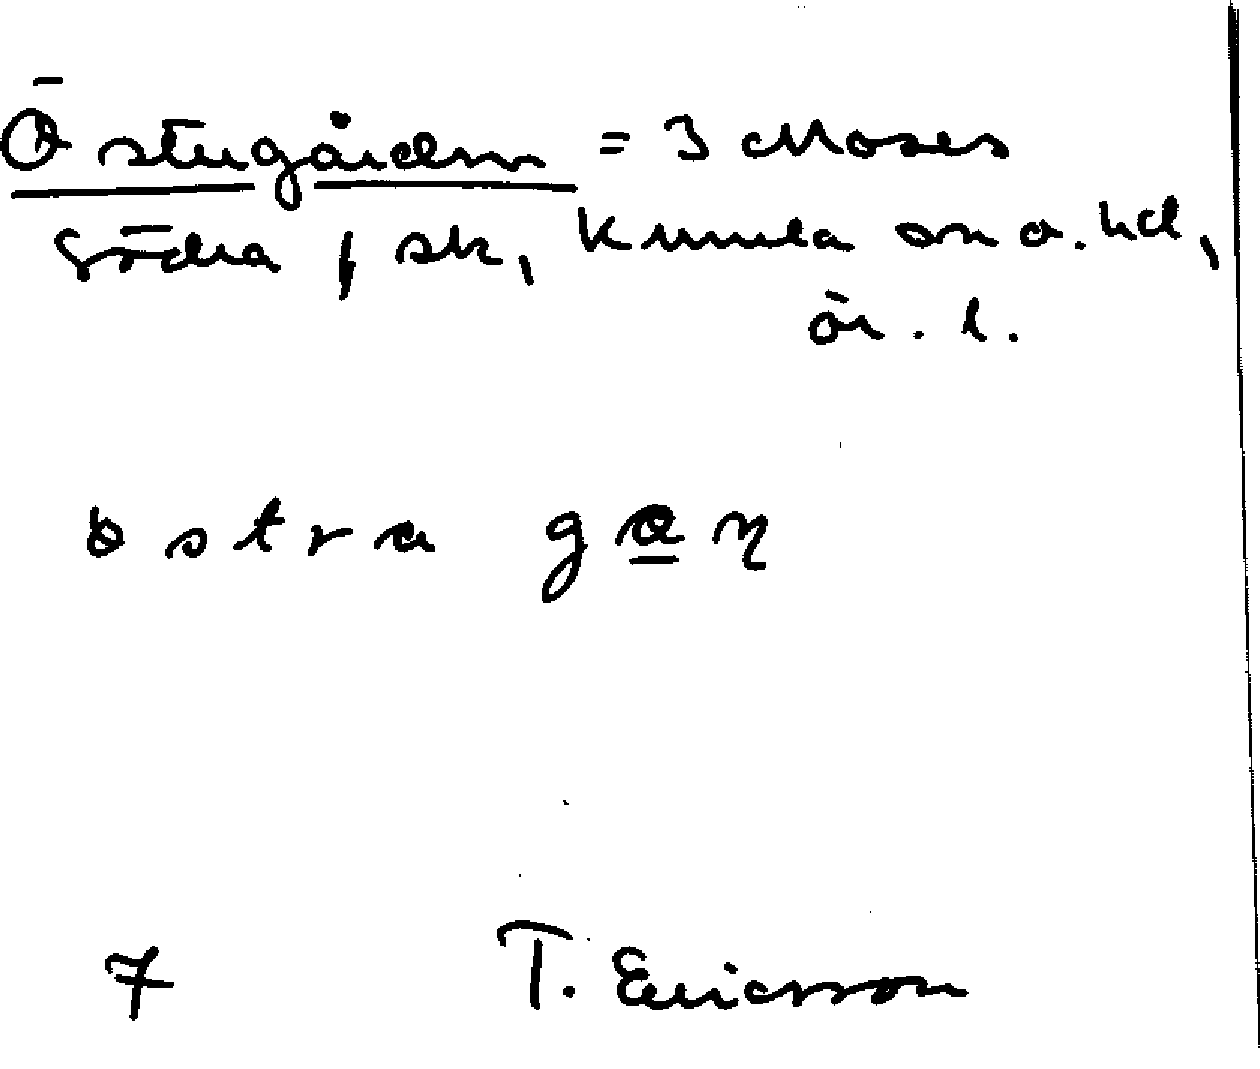 Östergården = 3 Moses
Södra f, sk, Kumla sn o. hd,
ör. l.
östra gaɳ
7 T. Ericsson